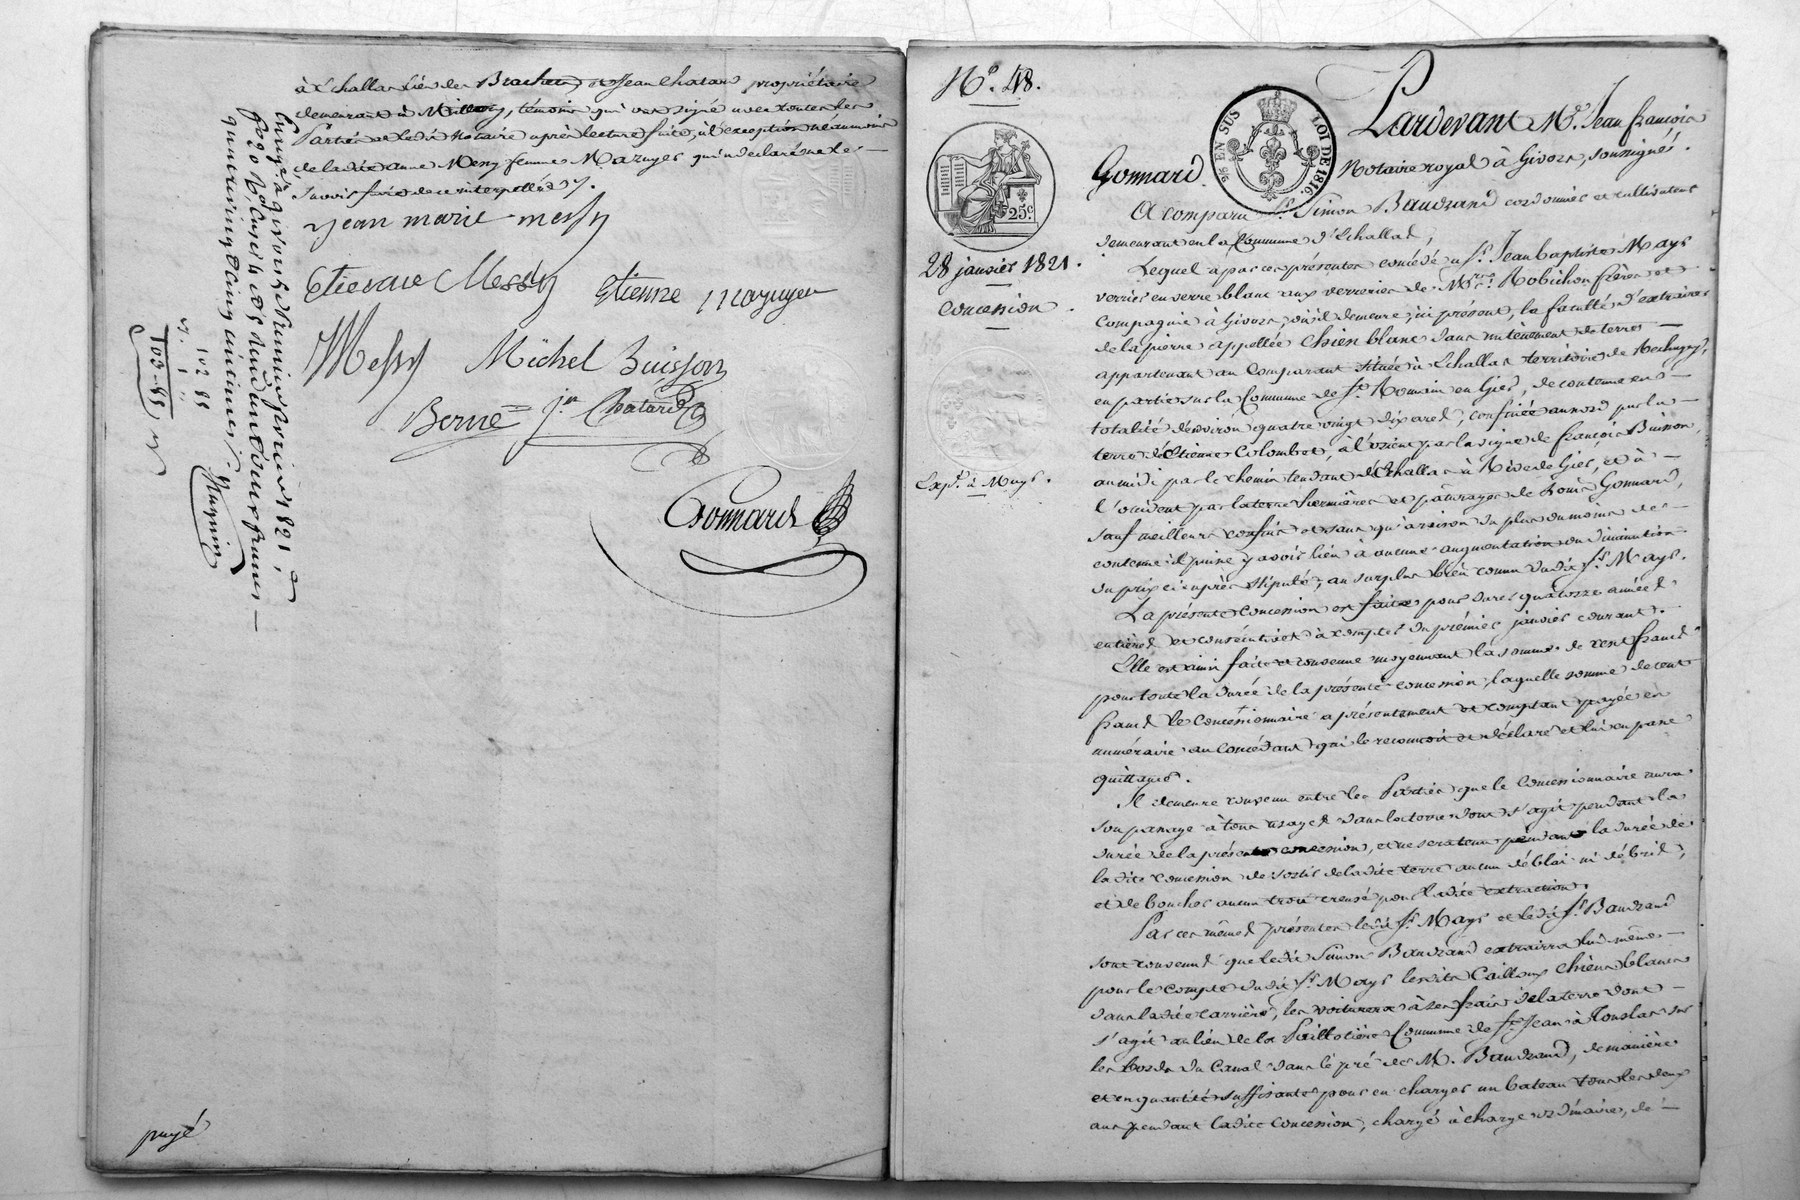 à Echallas lieu de Brachet, et Jean Chatard propriétaire
demeurant à Millery, témoins qui ont signé avec toutes les
Parties et ledit Notaire après lecture faite, à l'exception néanmoins
de ladite anne Messy femme Mazuyer qui a déclaré ne le
savoir faire de ce interpellés.
jean marie messy
Etienne Messy etienne mazuyer
Messy Michel Buisson
Berne jn Chatard
Gonnard
Enregé à Givors le premier février 1821,
reçu cent deux francs
102 85
103-85
payé
N.° 48.
25.c
28 janvier 1821.
Concession
Exp.on à Mays.
25 EN SUS
LOI DE 1816.
Pardevant M.e Jean françois
Gonnard Notaire royal à Givors, soussigné.
A comparu S.r Simon Baudrand cordonnier et cultivateur
demeurant en la Commune d'Echallas,
Lequel a par ces présentes concédé à S.r Jean baptiste Mays
verrier en verre blanc aux verreries de MM.rs Robichon frères et
compagnie à Givors, où il demeure, ici présent, la faculté d'extraire
de la pierre appellée chien blanc dans un tènement de terres
appartenant au comparant située à Echallas territoire de
en partie sur la Commune de S.t Romain en Gier, de contenue en
totalité d'environ quatre vingt dix ares, confinée au nord par la
terre d'Etienne Colombet, à l'orient par la vigne de françois Buisson,
au midi par le chemin tendant d'Echallas à Rive de Gier, et à
l'occident par la terre hermière et pâturages de Louis Gonnard,
sauf meilleurs confins et sans qu'à raison du plus ou moins de
contenue il puisse y avoir lieu à aucune augmentation ou diminution
du prix ci-après stipulé, au surplus bien connu dudit S.r Mays.
La présente concession est faite pour durer quatorze années
entières et consécutives à compter du prémier janvier courant.
Elle est ainsi faite et convenue moyennant la somme de cent francs
pour toute la durée de la présente concession, laquelle somme de cent
francs le concessionnaire a présentement et comptant payée en
numéraire au Concédant qui le reconnoît et déclare et lui en passe
quittance.
Il demeure convenu entre les Parties que le Concessionnaire aura
son passage à tous usages dans la terre dont s'agit pendant la
durée de la présente concession, et ne sera tenu pendant la durée de
ladite concession de sortir de ladite terre aucun déblai ni débris,
et de boucher aucun trou creusé pour ladite extraction.
Par ces mêmes présentes ledit S.r Mays et ledit S.r Baudrand
sont convenus que ledit Simon Baudrand extraira lui même
pour le compte dudit S.r Mays lesdits Cailloux chiens blancs
dans ladite carrière, les voiturera à ses frais de la terre dont
s'agit au lieu de la Paillotière Commune de S.t Jean à Touslas sur
les bords du Canal dans le pré de M. Baudrand, de manière
et en quantité suffisantes pour en charger un bateau tous les deux
ans pendant ladite concession, chargé à charge ordinaire, de